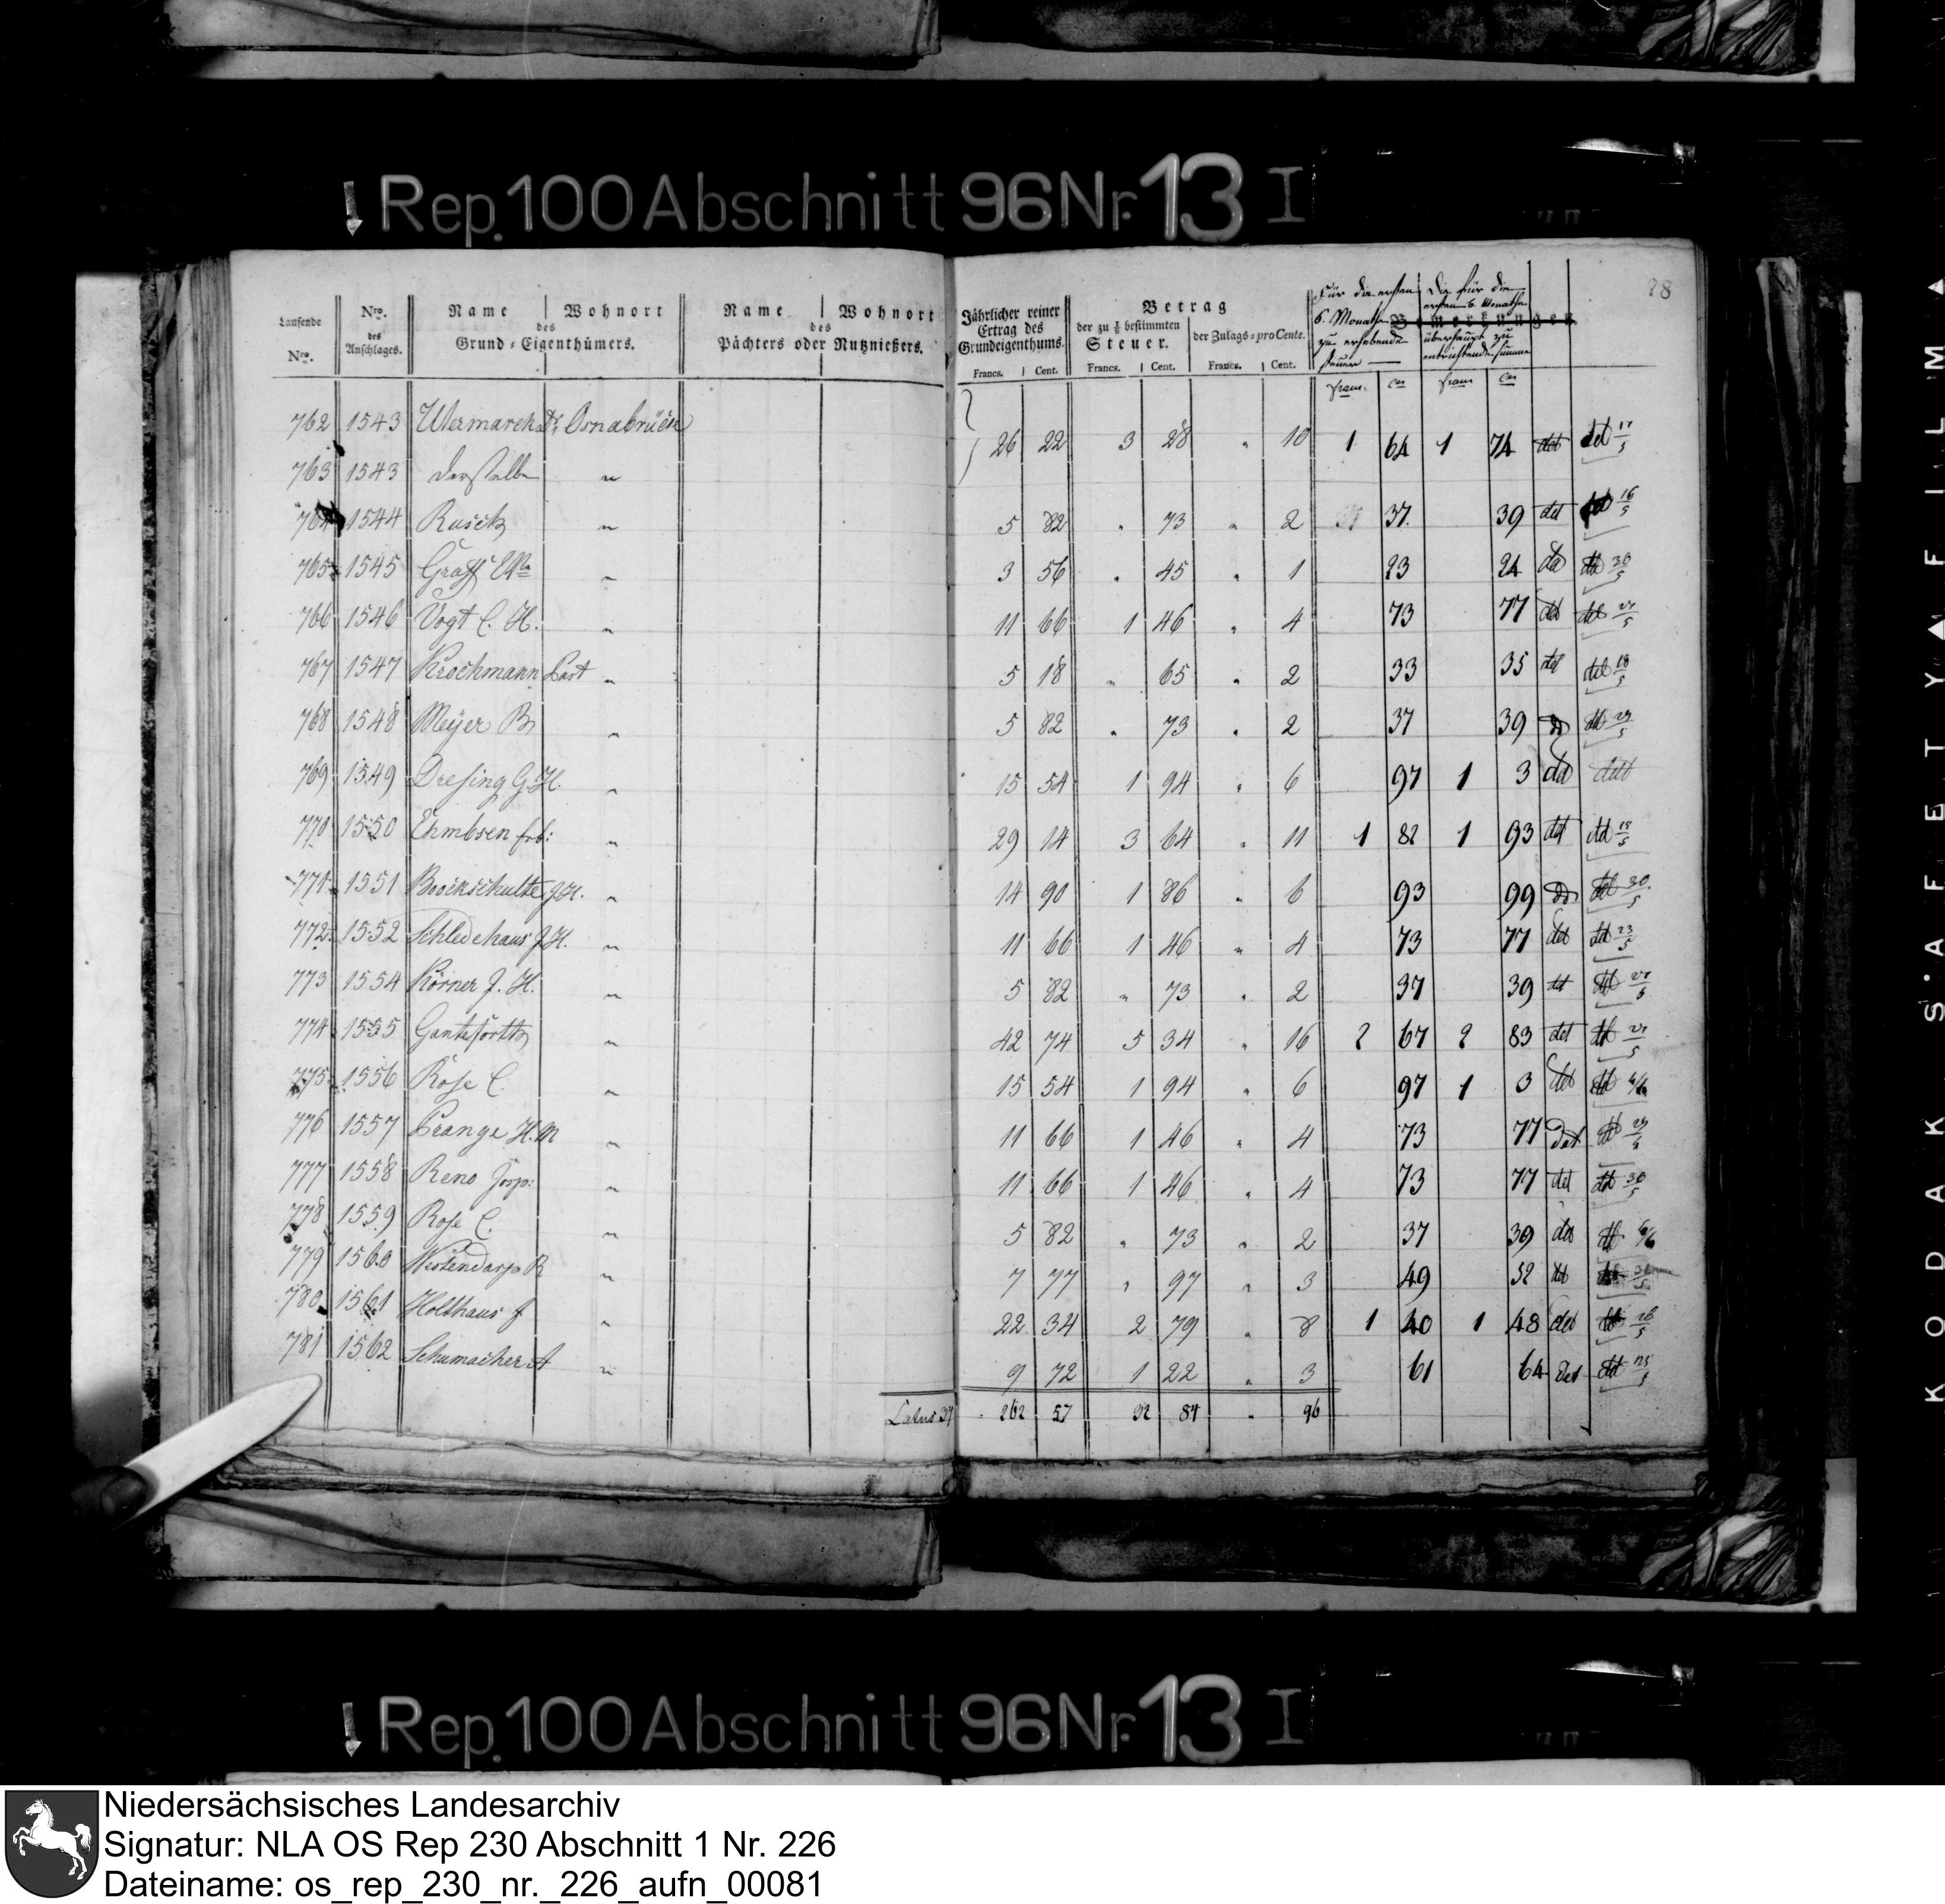 Rep. 100 Abschnitt 96 Nr. 13 I
28
Laufende Nro. Nro. des Anschlages. Name Wohnort des Grund-Eigenthümers. Name Wohnort des Pächters oder Nutznießers. Jährlicher reiner Ertrag des Grundeigenthums. Betrag der zu 1/8 bestimmten Steuer. der Zulags-pro Cente. Bemerkungen.
Für die ersten 6. Monathe zu erhebende Steuer
Die für die ersten 6. Monathe überhaupt zu entrichtende Summe
Francs. Cent. Francs. Cent. Francs. Cent. franc. Ces franc Ces
762 1543 Osnabrück 26 22 3 28 " 10 1 64 1 74 det det 17/5
763 1543 derselbe "
764 1544 " 5 82 " 73 " 2 37. 39 det 16/5
765 1545 Graff " 3 56 " 45 " 1 23 24 det 30/5
766 1546 Vogt C. H. " 11 66 1 46 " 4 73 77 det det 21/5
767 1547 Krochmann " 5 18 " 65 " 2 33 35 det det 18/5
768 1548 Meyer " 5 82 " 73 " 2 37 39 det
769 1549 Dresing G. H. " 15 54 1 94 " 6 97 1 3 det dett
770 1550 Ehmbsen " 29 14 3 64 " 11 1 82 1 93 det det 18/5
771 1551 Boockschulte J. H. " 14 90 1 86 " 6 93 99 det 30/5
772 1552 Schledehaus J. H. " 11 66 1 46 " 4 73 77 det det 23/5
773 1554 Körner J. H. " 5 82 " 73 " 2 37 39 det
774 1555 Gantesorth " 42 74 5 34 " 16 2 67 2 83 det det 21/5
775 1556 Rose C. " 15 54 1 94 " 6 97 1 3 det det
776 1557 Prange H. M " 11 66 1 46 " 4 73 77 det
777 1558 Reno " 11 66 1 46 " 4 73 77 det det 30/5
778 1559 Rose C. " 5 82 " 73 " 2 37 39 det
779 1560 Westendarp R " 7 77 " 97 " 3 49 52 det
780 1561 Holthaus J " 22 34 2 79 " 8 1 40 1 48 det
781 1562 Schumacher A " 9 72 1 22 " 3 61 64 det det
Latus 262 57 32 84 " 96
Rep. 100 Abschnitt 96 Nr. 13 I
KODAK SAFETY FILM
Niedersächsisches Landesarchiv
Signatur: NLA OS Rep 230 Abschnitt 1 Nr. 226
Dateiname: os_rep_230_nr._226_aufn_00081